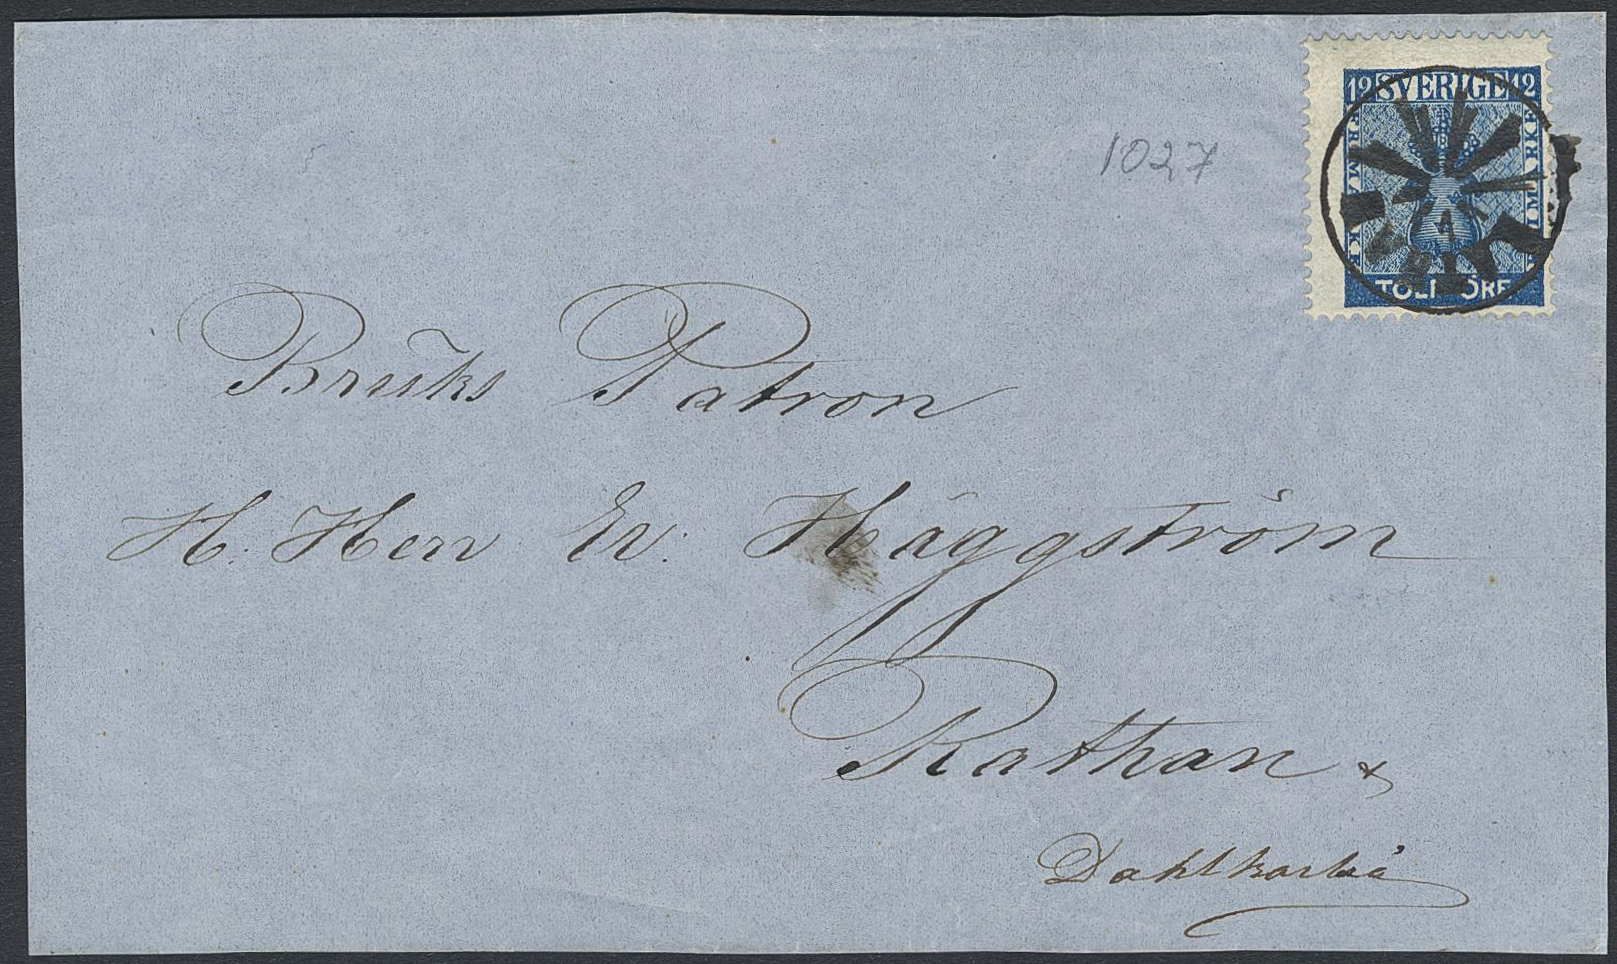 12 SVERIGE 12
FRIMÄRKE
FRIMÄRKE
TOLF ÖRE
1027
Bruks Patron
H. Herr Ev: Häggström
Rathan
Dahlkarlså